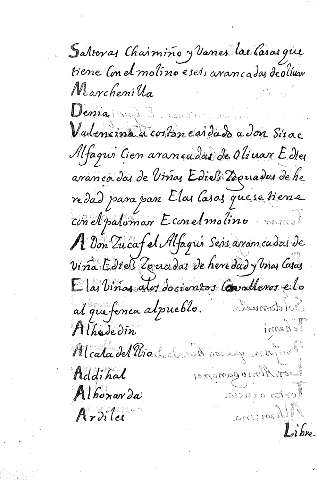 Salteras Chaimiño y Vanes las Casas que
tiene Con el molino e seis arancadas de olivar
Marchenilla
Denia
Valencina a coston e aidado a don Sisac
Alfaqui Cien arancadas de Olivar E dies
arancadas de Viñas E dies Yoguadas de he
redad para pan E las Casas que se tiene
con el palomar E con el molino
A Don Zucaf el Alfaqui Seis arrancadas de
viña E dies Yoguadas de heredad y Unas Casas
E las Viñas a los docientos Cavalleros e lo
al que fenca al pueblo.
Alhadedin
Alcala del Rio
Addihal
Alhonarda
Ardiles
Libre.